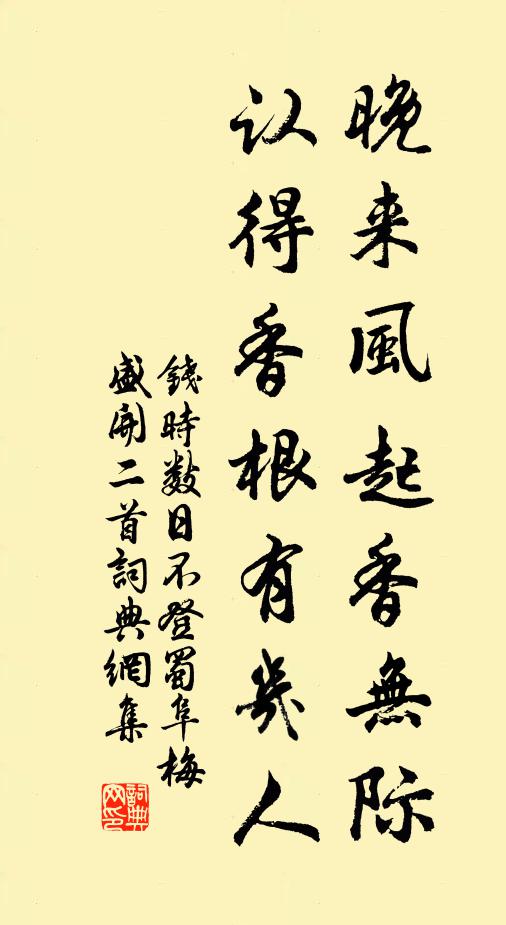 晚来風起香無际
认得香根有幾人
錢時数日不登蜀阜梅
盛開二首詞典網集
詞典網印